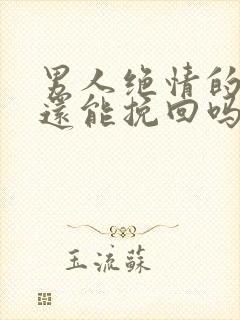 男人绝情的
還能挽回吗
玉流蘇